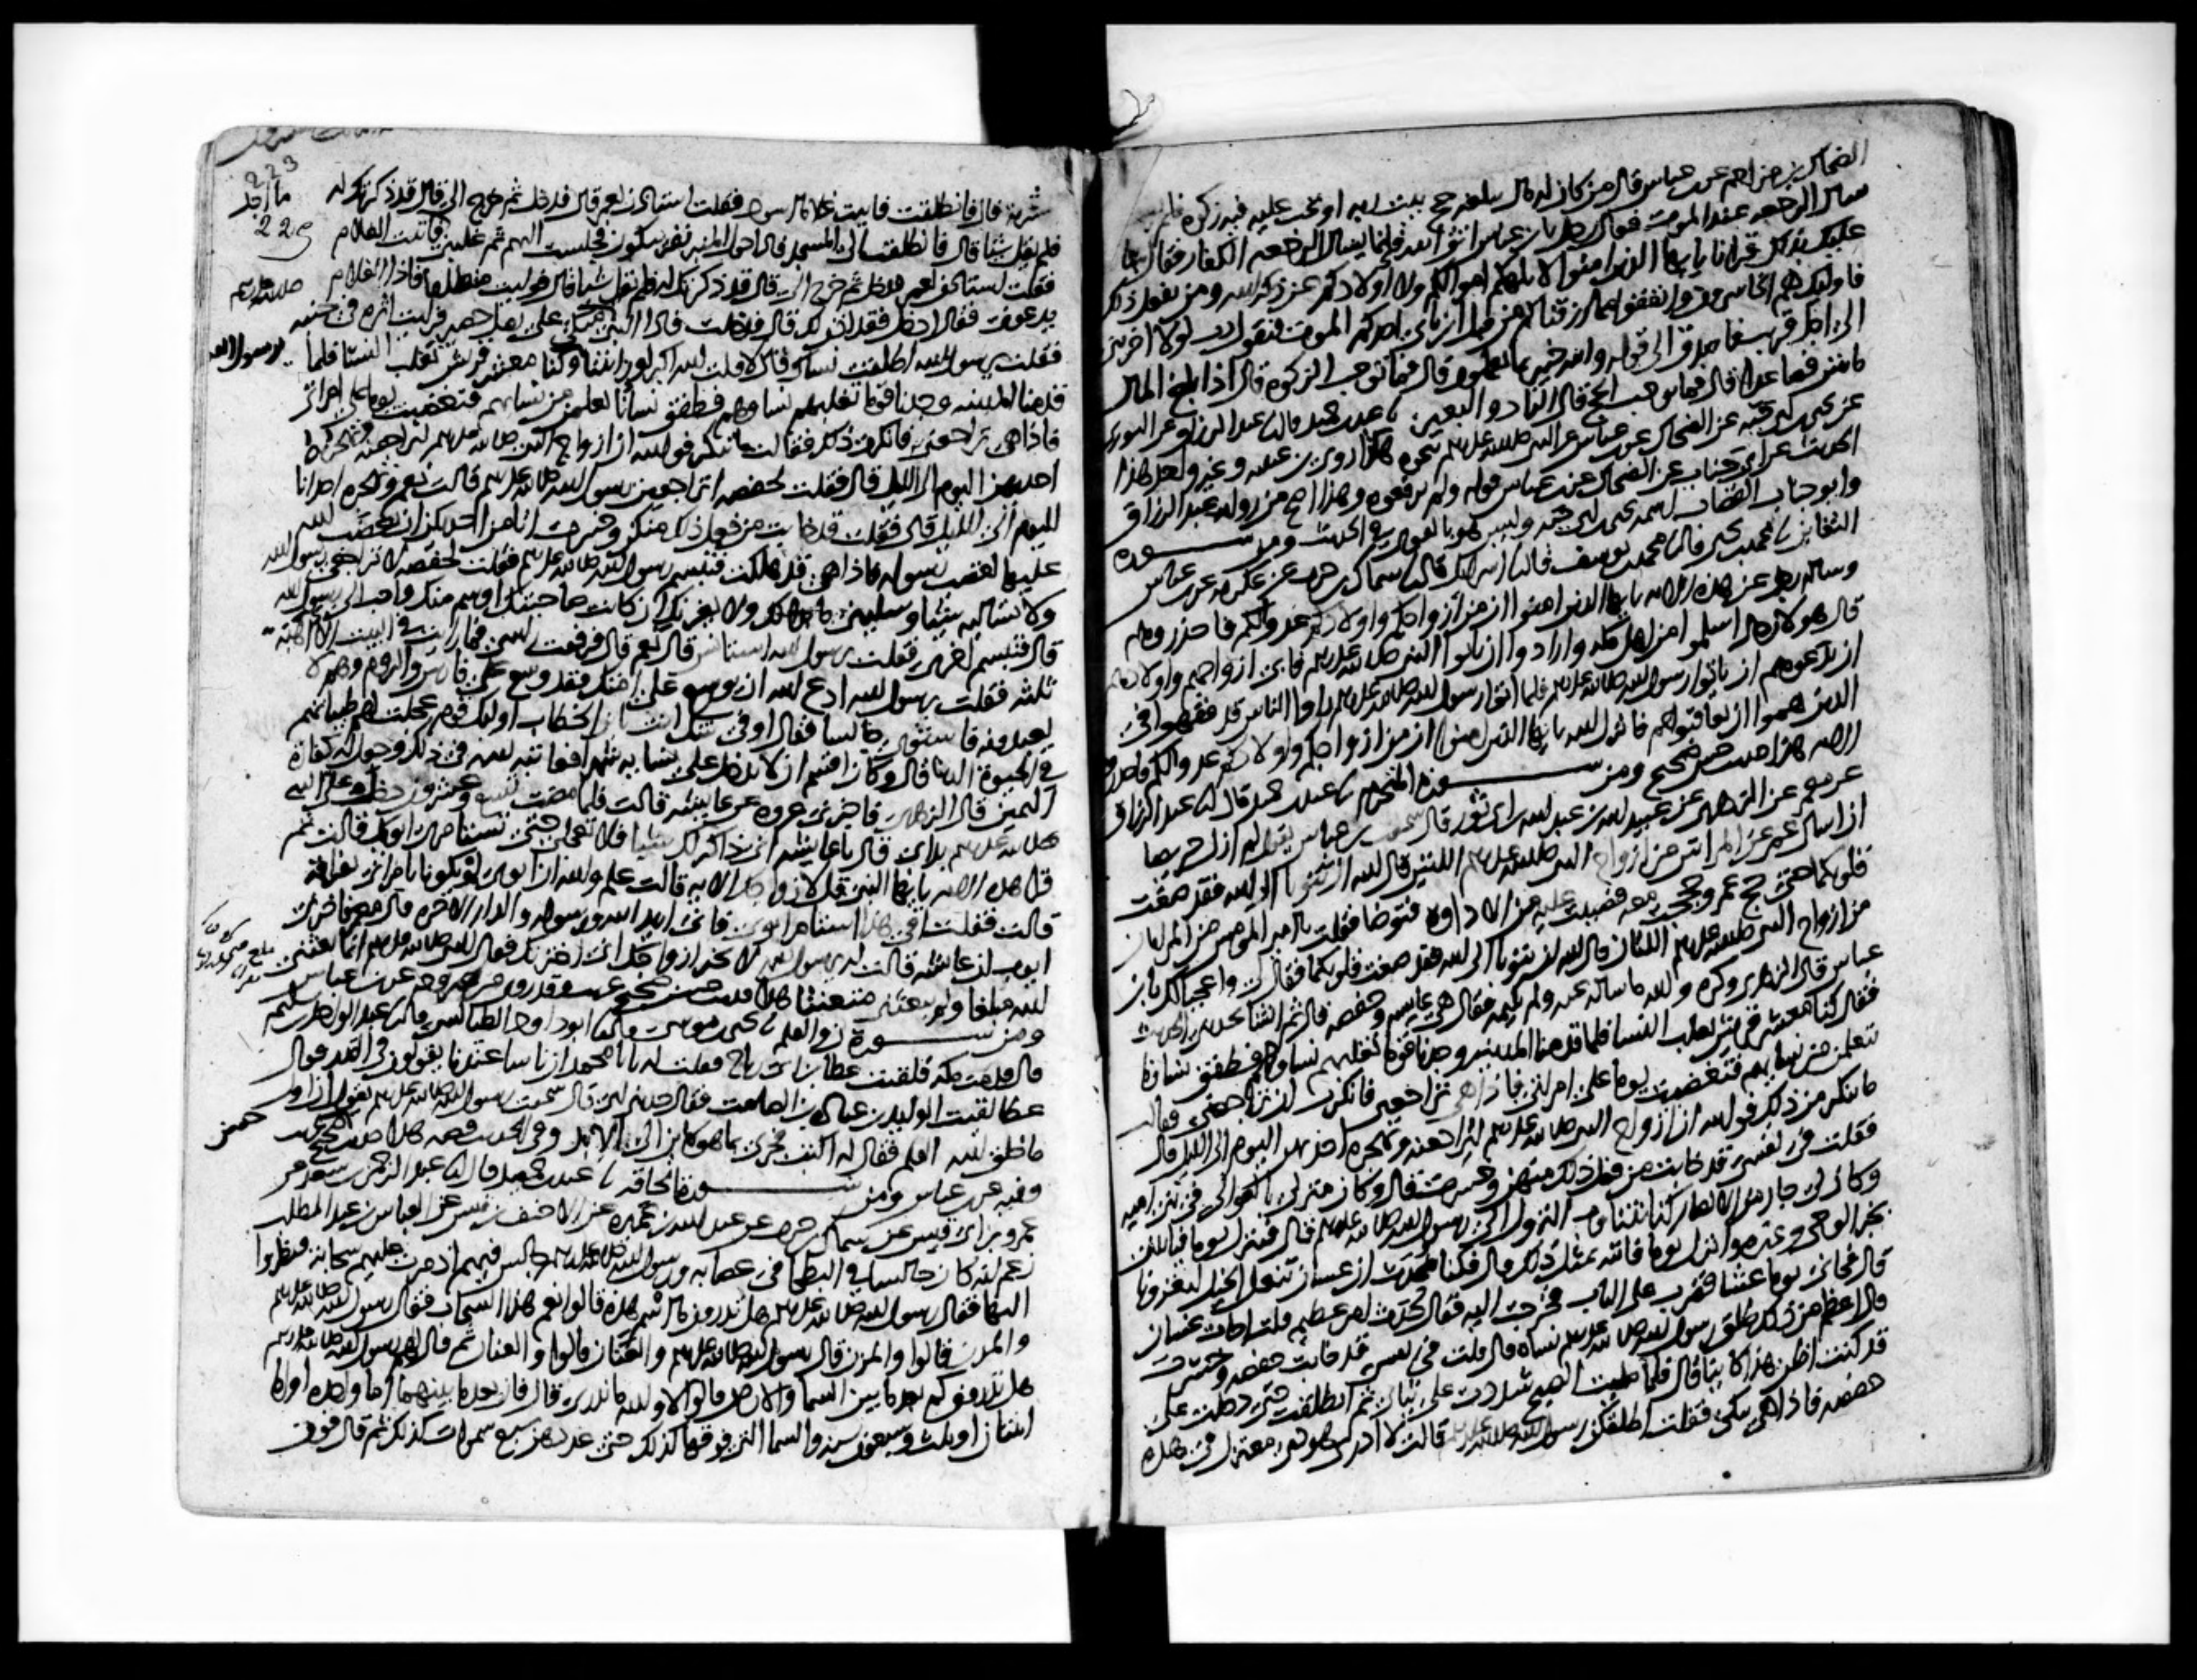 الضحاك بن مزاحم عن ابن عباس قال من كان له مال يبلغه حج بيت ربه او تجب عليه فيه زكوة فلم يفعل
سال الرجعه عند الموت فقال رجل يا ابن عباس اتق الله فانما يسال الرجعه الكفار فقال سا
عليك بذلك قرانا يا ايها الذين امنوا لا تلهكم اموالكم ولا اولادكم عن ذكر الله ومن يفعل ذلك
فاولئك هم الخاسرون وانفقوا مما رزقناكم من قبل ان ياتي احدكم الموت فيقول رب لولا اخرتني
الى اجل قريب فاصدق الى قوله والله خبير بما تعملون قال فما توجب الزكوة قال اذا بلغ المال
مائتين فصاعدا قال فما يوجب الحج قال الزاد والبعير عبد بن حميد قال عبد الرزاق عن الثوري
عن يحيى بن ابي حيه عن الضحاك عن ابن عباس عن النبي صلى الله عليه وسلم بنحوه هكذا روى ابن عيينه وغير واحد هذا
الحديث عن ابي جناب عن الضحاك عن ابن عباس قوله ولم يرفعوه وهذا اصح من روايه عبد الرزاق
وابو جناب القصاب اسمه يحيى بن ابي حيه وليس هو بالقوي في الحديث ومن سورة
التغابن محمد بن يحيى قال محمد بن يوسف قال اسرائيل قال سماك بن حرب عن عكرمه عن ابن عباس
وساله رجل عن هذه الايه يا ايها الذين امنوا ان من ازواجكم واولادكم عدوا لكم فاحذروهم
قال هولاء رجال اسلموا من اهل مكه وارادوا ان ياتوا النبي صلى الله عليه وسلم فابى ازواجهم واولادهم
ان يدعوهم ان ياتوا رسول الله صلى الله عليه وسلم فلما اتوا رسول الله صلى الله عليه وسلم راوا الناس قد فقهوا في
الدين هموا ان يعاقبوهم فانزل الله يا ايها الذين امنوا ان من ازواجكم واولادكم عدوا لكم فاحذروهم
الايه هذا حديث حسن صحيح ومن سورة التحريم عبد بن حميد قال عبد الرزاق
عن معمر عن الزهري عن عبيد الله بن عبد الله بن ابي ثور قال سمعت ابن عباس يقول لم ازل حريصا
ان اسال عمر عن المراتين من ازواج النبي صلى الله عليه وسلم اللتين قال الله ان تتوبا الى الله فقد صغت
قلوبكما حتى حج عمر وحججت معه فصببت عليه من الاداوه فتوضا فقلت يا امير المومنين من المراتان
من ازواج النبي صلى الله عليه وسلم اللتان قال الله ان تتوبا الى الله فقد صغت قلوبكما فقال لي واعجبا لك يا ابن
عباس قال الزهري وكره والله ما ساله عنه ولم يكتمه فقال هي عايشه وحفصه قال ثم انشا يحدثني الحديث
فقال كنا معشر قريش نغلب النسا فلما قدمنا المدينه وجدنا قوما تغلبهم نساوهم فطفق نساونا
يتعلمن من نسايهم فتغضبت يوما على امراتي فاذا هي تراجعني فانكرت ان تراجعني فقالت
ما تنكر من ذلك فوالله ان ازواج النبي صلى الله عليه وسلم ليراجعنه وتهجره احداهن اليوم الى الليل قال
فقلت في نفسي قد خابت من فعل ذلك منهن وخسرت قال وكان منزلي بالعوالي في بني اميه
وكان لي جار من الانصار كنا نتناوب النزول الى رسول الله صلى الله عليه وسلم قال فينزل يوما فياتيني
بخبر الوحي وغيره وانزل يوما فاتيه بمثل ذلك قال فكنا نحدث ان غسان تنعل الخيل لتغزونا
قال فجاني يوما عشا فضرب على الباب فخرجت اليه فقال حدث امر عظيم قلت اجاءت غسان
قال اعظم من ذلك طلق رسول الله صلى الله عليه وسلم نساه قال قلت في نفسي قد خابت حفصه وخسرت
قد كنت اظن هذا كاينا قال فلما صليت الصبح شددت على ثيابي ثم انطلقت حتى دخلت على
حفصه فاذا هي تبكي فقلت اطلقكن رسول الله صلى الله عليه وسلم قالت لا ادري هو ذي معتزل في هذه
223
225
مشربه قال فانطلقت فاتيت غلاما اسود فقلت استاذن لعمر قال فدخل ثم خرج الي قال قد ذكرتك له
فلم يقل شيئا قال فانطلقت الى المسجد فاذا حول المنبر نفر يبكون فجلست اليهم ثم غلبني ما اجد فاتيت الغلام
فقلت استاذن لعمر فدخل ثم خرج الي قال قد ذكرتك له فلم يقل شيئا قال فوليت منطلقا فاذا الغلام
يدعوني فقال ادخل فقد اذن لك قال فدخلت فاذا النبي صلى الله عليه وسلم متكئ على رمل حصير فرايت اثره في جنبه
فقلت يرسول الله اطلقت نساك قال لا قلت الله اكبر لو رايتنا يرسول الله وكنا معشر قريش نغلب النسا فلما
قدمنا المدينه وجدنا قوما تغلبهم نساوهم فطفق نساونا يتعلمن من نسايهم فتغضبت يوما على امراتي
فاذا هي تراجعني فانكرت ذلك فقالت ما تنكر فوالله ان ازواج النبي صلى الله عليه وسلم ليراجعنه وتهجره
احداهن اليوم الى الليل قال فقلت لحفصه اتراجعين رسول الله صلى الله عليه وسلم قالت نعم وتهجره احدانا
اليوم الى الليل قال فقلت قد خابت من فعل ذلك منكن وخسرت اتامن احداكن ان يغضب الله
عليها لغضب رسوله فاذا هي قد هلكت فتبسم رسول الله صلى الله عليه وسلم فقلت لحفصه لا تراجعي رسول الله
ولا تساليه شيئا وسليني ما بدا لك ولا يغرنك ان كانت صاحبتك اوسم منك واحب الى رسول الله
قال فتبسم اخرى فقلت يرسول الله استانس قال نعم قال فرفعت راسي فما رايت في البيت الا اهبه
ثلثه فقلت يرسول الله ادع الله ان يوسع على امتك فقد وسع على فارس والروم وهم لا
يعبدونه فاستوى جالسا فقال اوفي شك انت يا ابن الخطاب اوليك قوم عجلت لهم طيباتهم
في الحيوة الدنيا قال وكان اقسم ان لا يدخل على نسايه شهرا فعاتبه الله في ذلك وجعل له كفارة
اليمين قال الزهري فاخبرني عروه عن عايشه قالت فلما مضت تسع وعشرون دخل علي النبي
صلى الله عليه وسلم بدا بي قال يا عايشه اني ذاكر لك شيئا فلا تعجلي حتى تستامري ابويك قالت ثم
قرا هذه الايه يا ايها النبي قل لازواجك الايه قالت علم والله ان ابوي لم يكونا يامراني بفراقه
قالت فقلت افي هذا استامر ابوي فاني اريد الله ورسوله والدار الاخره قال معمر فاخبرني
ايوب ان عايشه قالت له يرسول الله لا تخبر ازواجك اني اخترتك فقال النبي صلى الله عليه وسلم انما بعثني
الله مبلغا ولم يبعثني متعنتا هذا حديث حسن صحيح غريب وقد روي من غير وجه عن ابن عباس
ومن سورة ن والقلم يحيى بن موسى قال ابو داود الطيالسي قال عبد الواحد بن سليم
قال قدمت مكه فلقيت عطا بن ابي رباح فقلت له يا ابا محمد ان ناسا عندنا يقولون في القدر فقال
عطا لقيت الوليد بن عباده بن الصامت فقال حدثني ابي قال سمعت رسول الله صلى الله عليه وسلم يقول ان اول
ما خلق الله القلم فقال له اكتب فجرى بما هو كاين الى الابد وفي الحديث قصه هذا حديث حسن صحيح غريب
وفيه عن ابن عباس ومن سورة الحاقه عبد بن حميد قال عبد الرحمن بن سعد عن
عمرو بن ابي قيس عن سماك بن حرب عن عبد الله بن عميره عن الاحنف بن قيس عن العباس بن عبد المطلب
زعم انه كان جالسا في البطحا في عصابه ورسول الله صلى الله عليه وسلم جالس فيهم اذ مرت عليهم سحابه فنظروا
اليها فقال رسول الله صلى الله عليه وسلم هل تدرون ما اسم هذه قالوا نعم هذا السحاب فقال رسول الله صلى الله عليه وسلم
والمزن قالوا والمزن قال رسول الله صلى الله عليه وسلم والعنان قالوا والعنان ثم قال لهم رسول الله صلى الله عليه وسلم
هل تدرون كم بعد ما بين السما والارض قالوا لا والله ما ندري قال فان بعد ما بينهما اما واحده او اما
اثنتان او ثلث وسبعون سنه والسما التي فوقها كذلك حتى عددهن سبع سموات كذلك ثم قال فوق